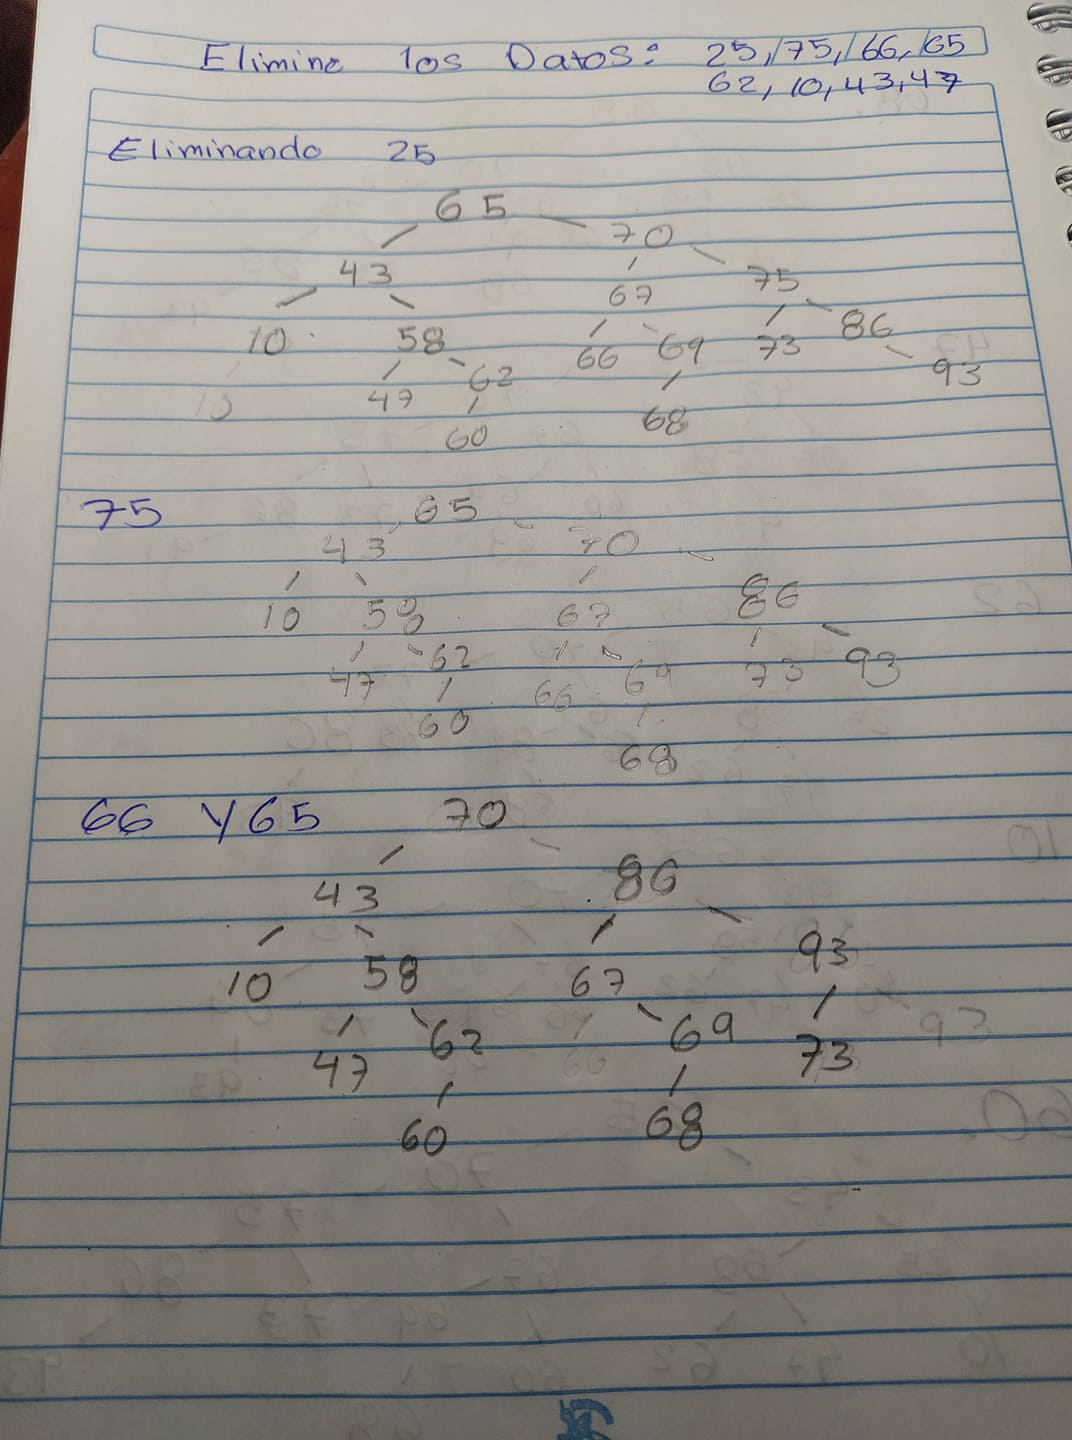 Elimine los Datos: 25, 75, 66, 65
62, 10, 43, 47
Eliminando 25
65
70
43
75
67
10
58
86
66
69
73
93
47
62
10
60
68
75
65
43
70
86
10
58
67
47
62
66
69
73
93
60
68
66 y 65
70
43
86
10
58
67
93
47
62
69
73
66
60
68